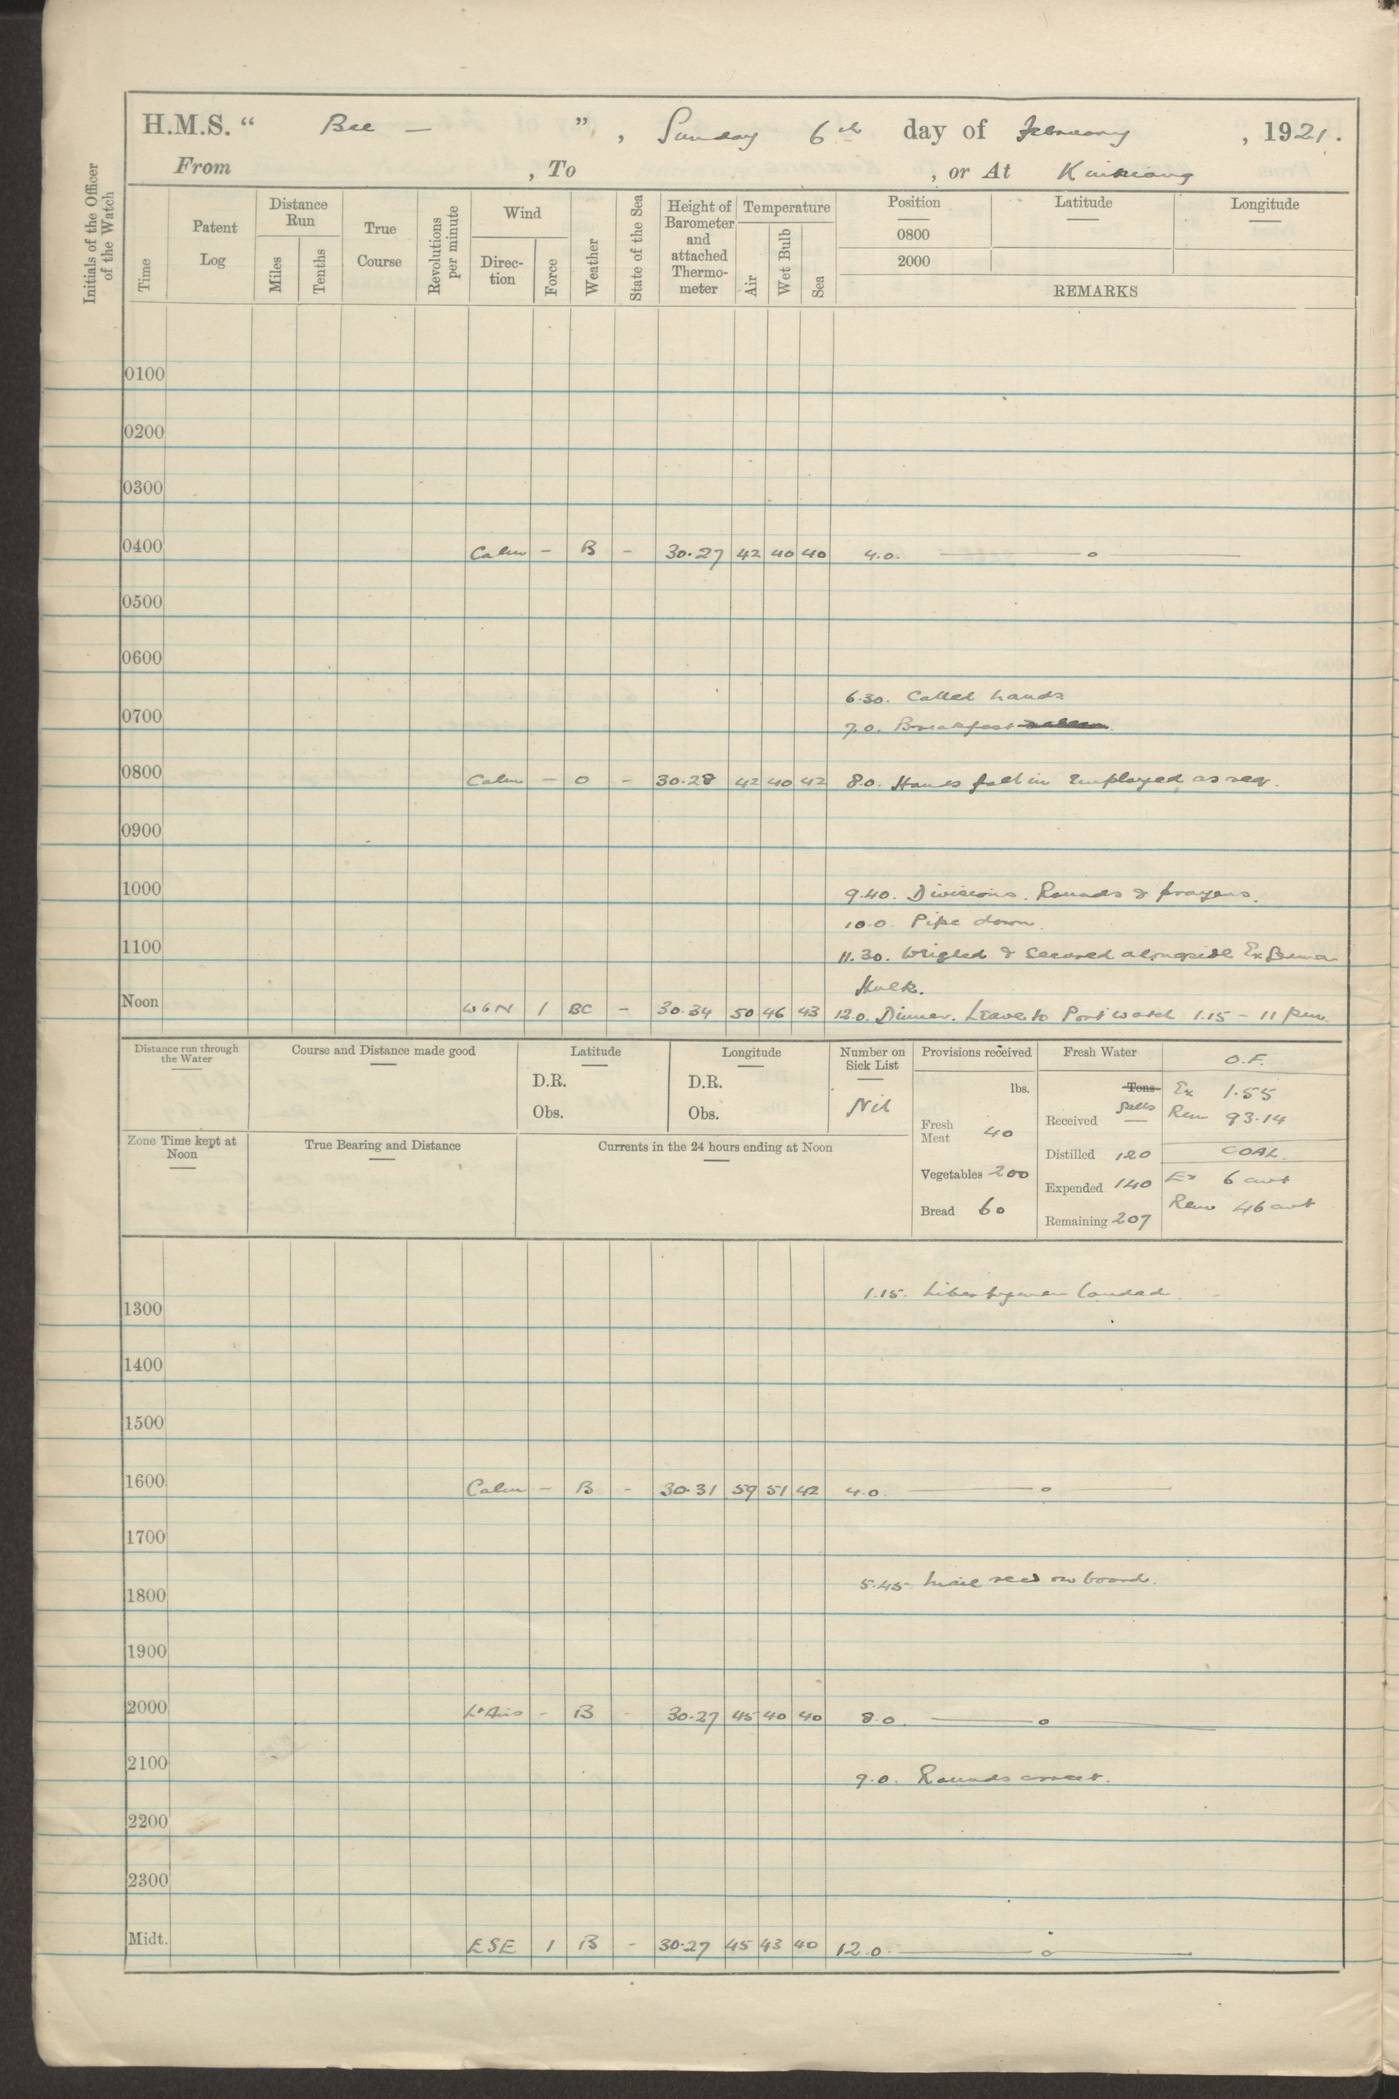 H.M.S. “ Bee — ”, Sunday 6th day of February, 1921.
From , To , or At Kiukiang
Initials of the Officer of the Watch
Time
Patent Log
Distance Run
Miles
Tenths
True Course
Revolutions per minute
Wind
Direc-tion
Force
Weather
State of the Sea
Height of Barometer and attached Thermo-meter
Temperature
Air
Wet Bulb
Sea
Position
0800
2000
Latitude
Longitude
REMARKS
0100
0200
0300
0400 Calm – B – 30·27 42 40 40 4.0. ——o——
0500
0600
6.30. Called hands
0700
7.0. Breakfast
0800 Calm – O – 30·28 42 40 42 8.0. Hands fall in Employed as req.
0900
9.40. Divisions. Rounds & prayers.
1000
10.0. Pipe down.
1100
11.30. Weighed & Secured alongside Ex
Hulk.
Noon 1 BC – 30·34 50 46 43 12.0. Dinner. Leave to Port watch 1.15 – 11 pm.
Distance run through the Water
Course and Distance made good
Latitude
D.R.
Obs.
Longitude
D.R.
Obs.
Number on Sick List
Nil
Provisions received
lbs.
Fresh Meat 40
Vegetables 200
Bread 60
Fresh Water
Tons
galls
Received —
Distilled 120
Expended 140
Remaining 207
O.F.
Ex 1·55
Rem 93·14
COAL.
Ex 6 cwt
Rem 46 cwt
Zone Time kept at Noon
True Bearing and Distance
Currents in the 24 hours ending at Noon
1.15. Libertymen landed.
1300
1400
1500
1600 Calm – B – 30·31 59 51 42 4.0. ——o——
1700
5.45 Mail recd on board.
1800
1900
2000 Lt Airs – B – 30·27 45 40 40 8.0. ——o——
2100
9.0. Rounds correct.
2200
2300
Midt. ESE 1 B – 30·27 45 43 40 12.0. ——o——